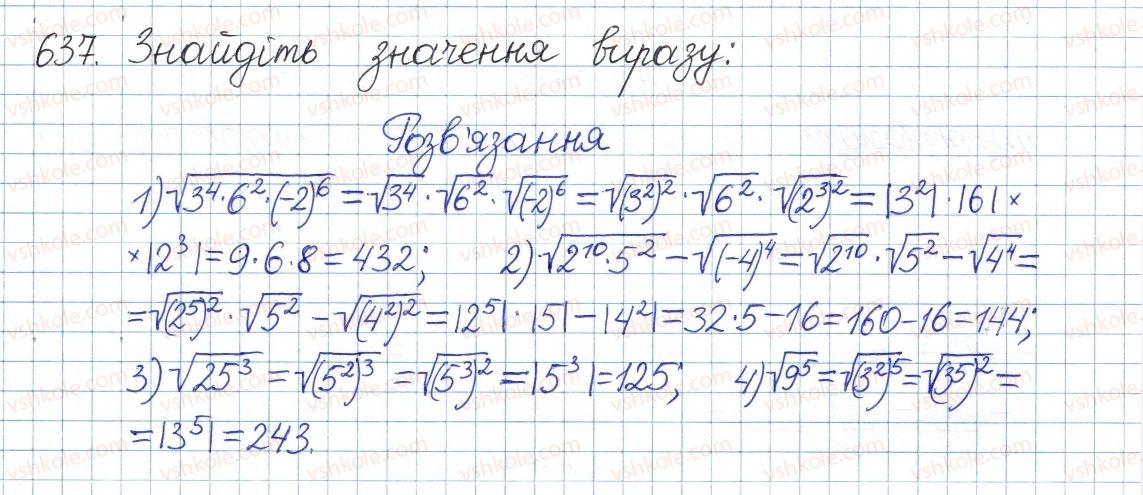 637. Знайдіть значення виразу:
Розв'язання
1) √(3⁴·6²·(-2)⁶) = √3⁴ · √6² · √(-2)⁶ = √(3²)² · √6² · √(2³)² = |3²| · |6| ×
× |2³| = 9·6·8 = 432; 2) √(2¹⁰·5²) - √(-4)⁴ = √2¹⁰ · √5² - √4⁴ =
= √(2⁵)² · √5² - √(4²)² = |2⁵| · |5| - |4²| = 32·5 - 16 = 160 - 16 = 144;
3) √25³ = √(5²)³ = √(5³)² = |5³| = 125; 4) √9⁵ = √(3²)⁵ = √(3⁵)² =
= |3⁵| = 243.
vshkole.com